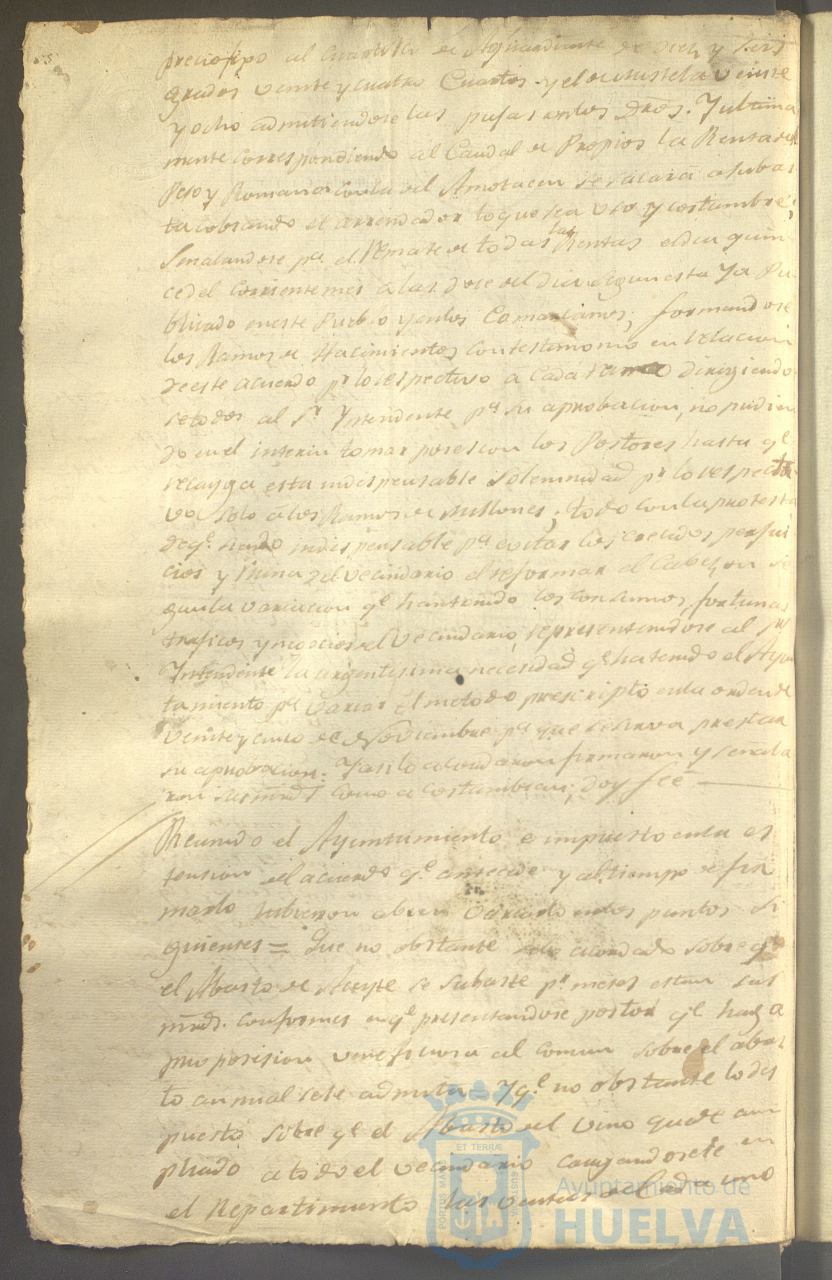 precio fixo al Quartillo de Aguardiente de diez y seis
grados veinte y cuatro Cuartos y el de Mistela veinte
y ocho admitiendose las pujas en los Dros. Y ultima
mente correspondiendo al Caudal de Propios la Renta del
Peso y Romana con la del Amotacen se sacará a subas
ta cobrando el arrendador lo que sea uso y costumbre,
Senalandose pa. el Remate de todas las Rentas el dia quin
ce del corriente mes a las doce del dia segun esta ya Pu
blicado en este Pueblo y en los Comarcanos, formandose
los Ramos de Hacimientos con testimonio en relacion
de este acuerdo pr. lo respectivo a cada ramo dirigiendo
se todos al Sr. Yntendente pa. su aprobacion, no pudien
do en el interin tomar posesion los Postores hasta qe.
recayga esta indispensable solemnidad pr. lo respecti
vo solo a los Ramos de Millones; todo con la protesta
de qe. siendo indispensable pa. evitar los crecidos perjui
cios y ruina del vecindario el reformar el Cabezon se
gun la variacion qe. han tenido los consumos, fortunas
traficos y negocios del vecindario, representandose al Sr.
Intendente la urgentisima necesidad qe. ha tenido el Ayun
tamiento pa. variar el metodo prescripto en la orden de
veinte y cinco de Noviembre pa. que se sirva prestar
su aprobacion. Y asi lo acordaron firmaron y senala
ron sus mrds. como acostumbran, doy feé
Reunido el Ayuntamiento e impuesto en la es
tension del acuerdo qe. antecede y al tiempo de fir
marlo hubieron a bien variarlo en los puntos si
guientes = Que no obstante lo acordado sobre qe.
el Abasto de Aceyte se subaste pr. meses estan sus
mrds. conformes en qe. presentandose postor qe. haga
proposision veneficiosa al comun sobre el abas
to anual se le admita. Y qe. no obstante lo dis
puesto sobre qe. el Abasto del vino quede am
pliado a todo el vecindario cargandosele en
el Repartimiento las ventas de Cada uno
ET TERRÆ
PORTUS MARIS
CUSTODIA
Ayuntamiento de
HUELVA